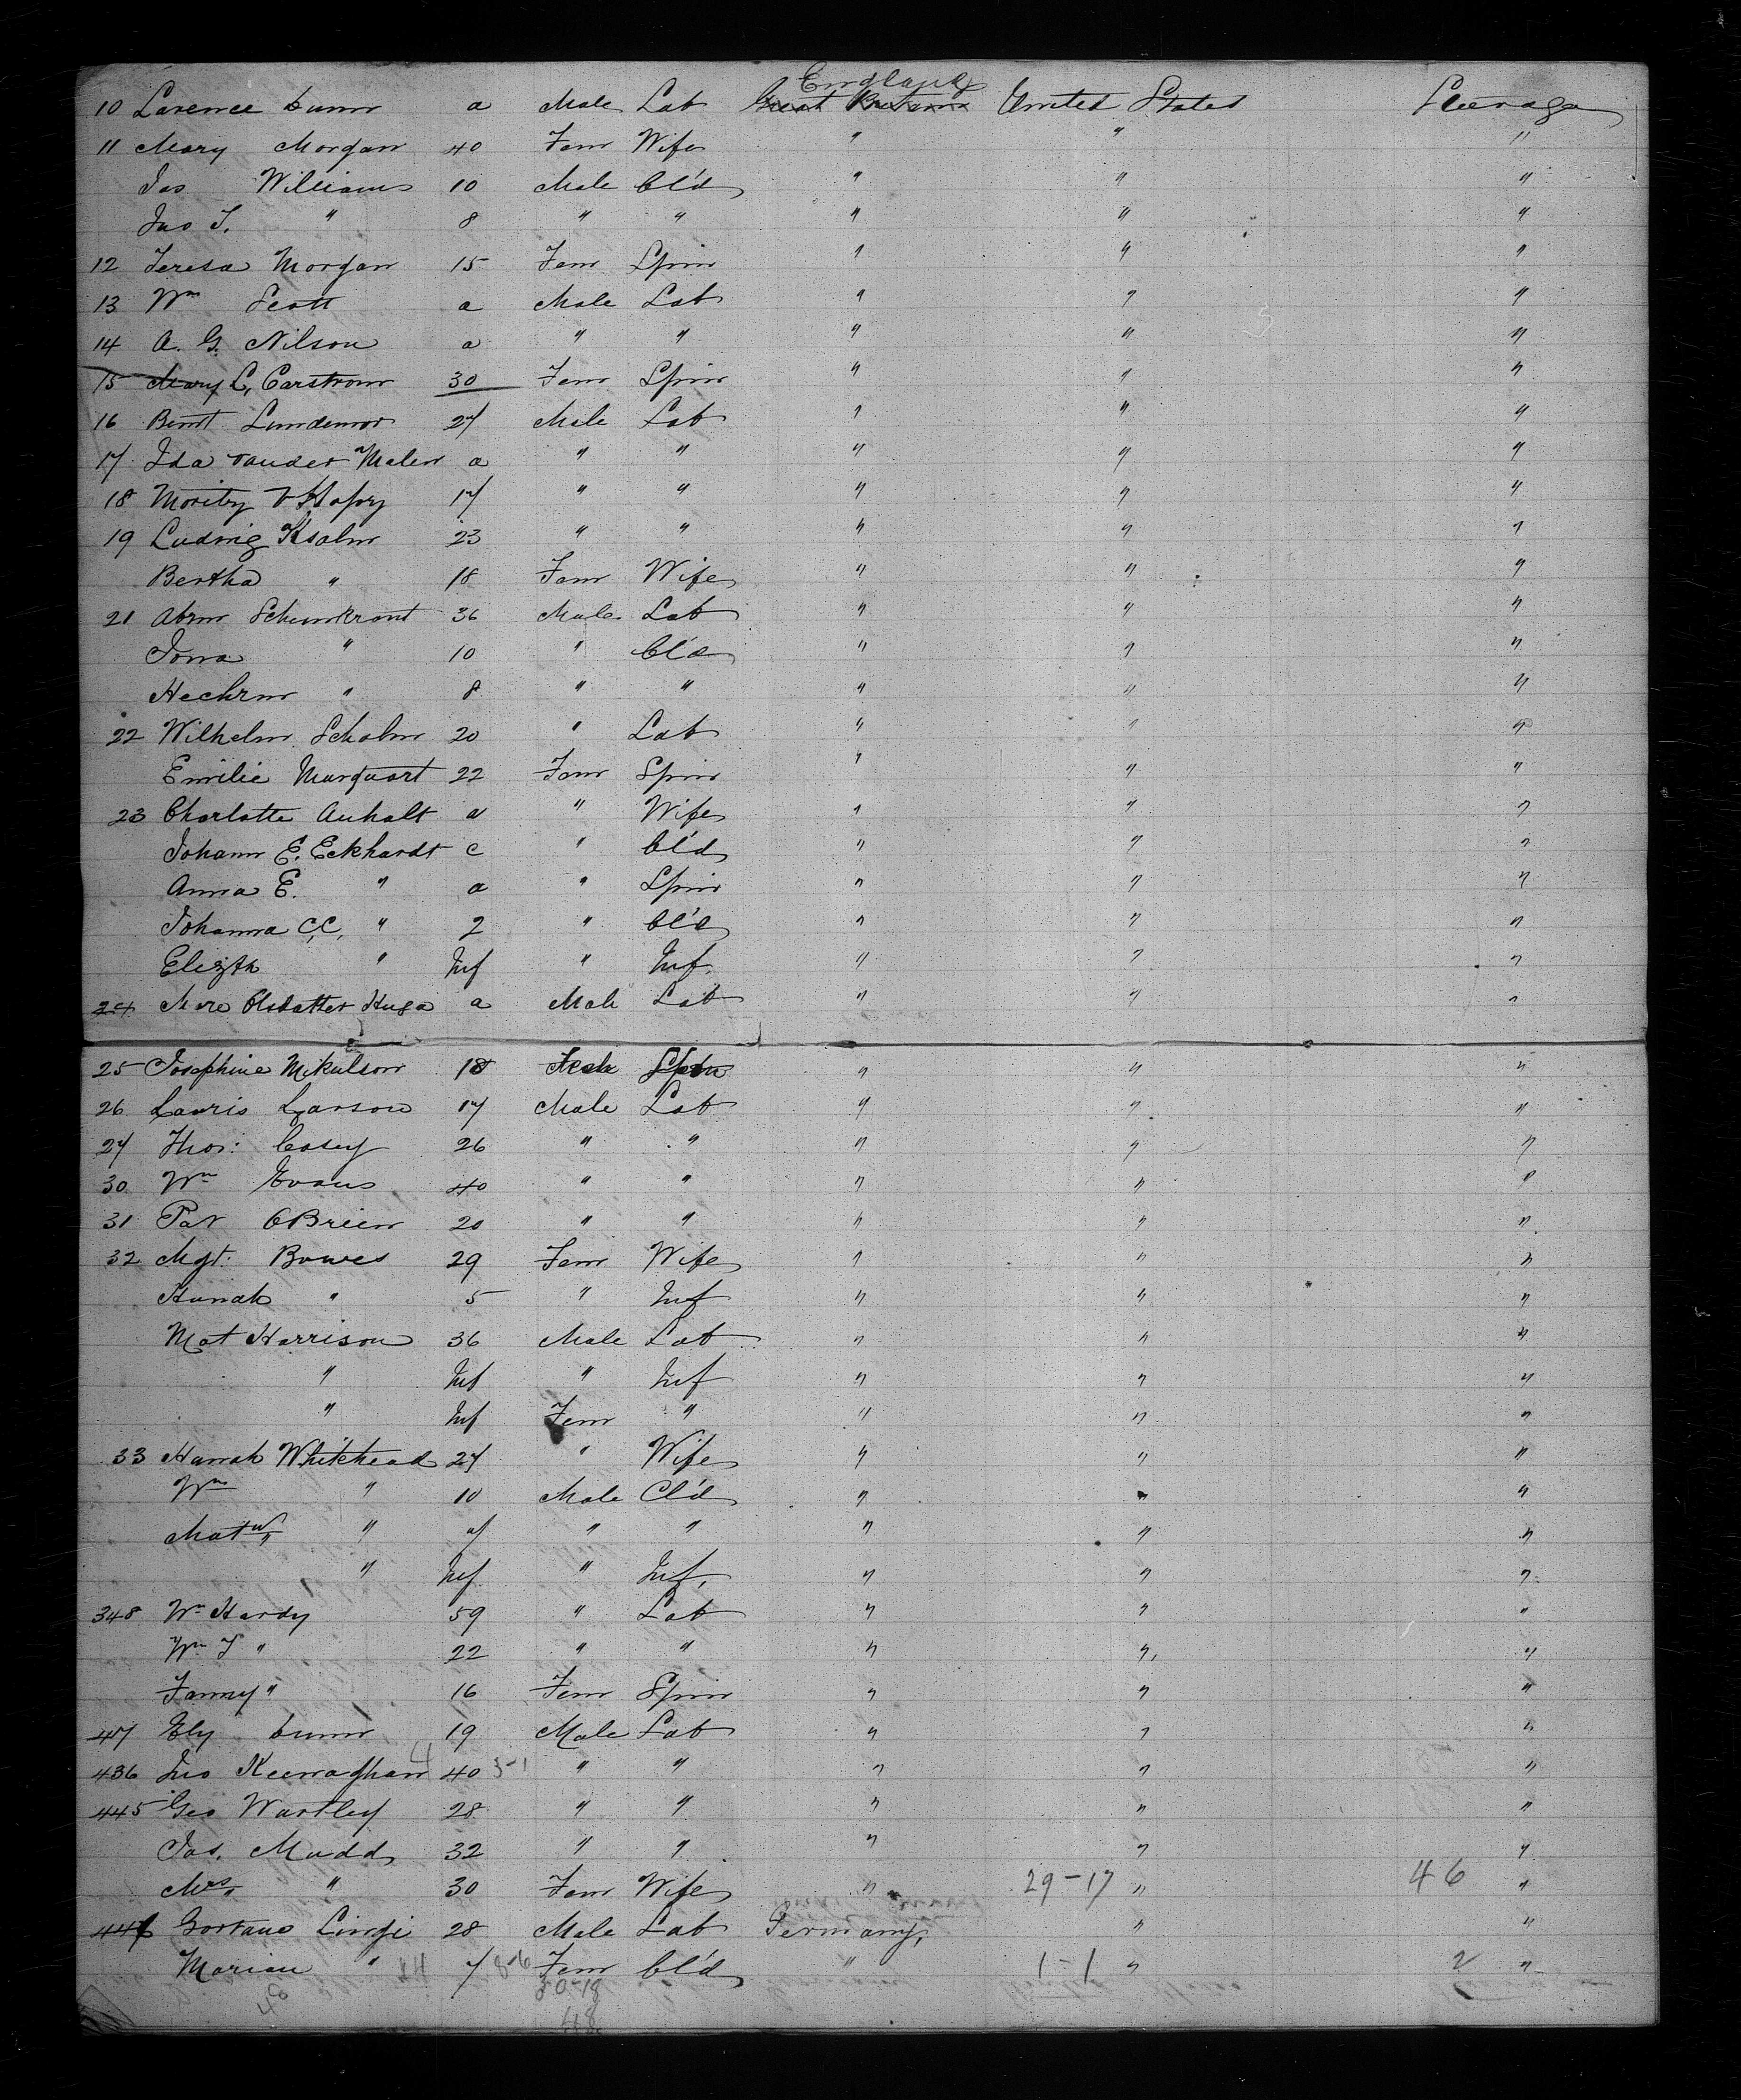 England
10 Lorence Cunn a Male Lab Great Britain United States Steerage
11 Mary Morgan 40 Fem Wife " " "
Jas Williams 10 Male Cl'd " " "
Jno T. " 8 " " " " "
12 Teresa Morgan 15 Fem Spin " " "
13 Wm Scott a Male Lab " " "
14 A. G. Nilson a " " " " "
15 Mary C, Carstrom 30 Fem Spin " " "
16 Bernt 27 Male Lab " " "
17 Ida vander Malen a " " " " "
18 17 " " " " "
19 Ludwig 23 " " " " "
Bertha " 18 Fem Wife " " "
21 Abm Schunkront 36 Male Lab " " "
" 10 " Cl'd " " "
" 8 " " " " "
22 Wilhelm Scholm 20 " Lab " " "
Emilie Marquart 22 Fem Spin " " "
23 Charlotte Anhalt a " Wife " " "
Johann E. Eckhardt c " Cl'd " " "
Anna E. " a " Spin " " "
Johanna C,C, " 2 " Cl'd " " "
Elizth " Inf " Inf. " " "
24 Olsdatter a Male Lab " " "
25 Josephine Mikulson 18 Spin " " "
26 Lauris Larson 17 Male Lab " " "
27 Thos: Casey 26 " " " " "
30 Wm Evans 40 " " " " "
31 Pat OBrien 20 " " " " "
32 Mgt: Bowes 29 Fem Wife " " "
Hanah " 5 " Inf " " "
Mat Harrison 36 Male Lab " " "
" Inf " Inf " " "
" Inf Fem " " " "
33 Hanah Whitehead 27 " Wife " " "
Wm " 10 Male Cl'd " " "
Matw " " " " " "
" Inf " Inf, " " "
348 Wm Hardy 59 " Lab " " "
Wm T " 22 " " " " "
Fanny " 16 Fem Spin " " "
47 Ely Cunn 19 Male Lab " " "
436 Jno Keenaghan 4 40 3-1 " " " " "
445 Geo Wartley 28 " " " " "
Jas. Mudd 32 " " " " "
Mrs " 30 Fem Wife " 29-17 " 46 "
28 Male Lab Germany, " "
Marian " 7 8-6 Fem Cl'd " 1-1 " 2 "
48 30-18
48